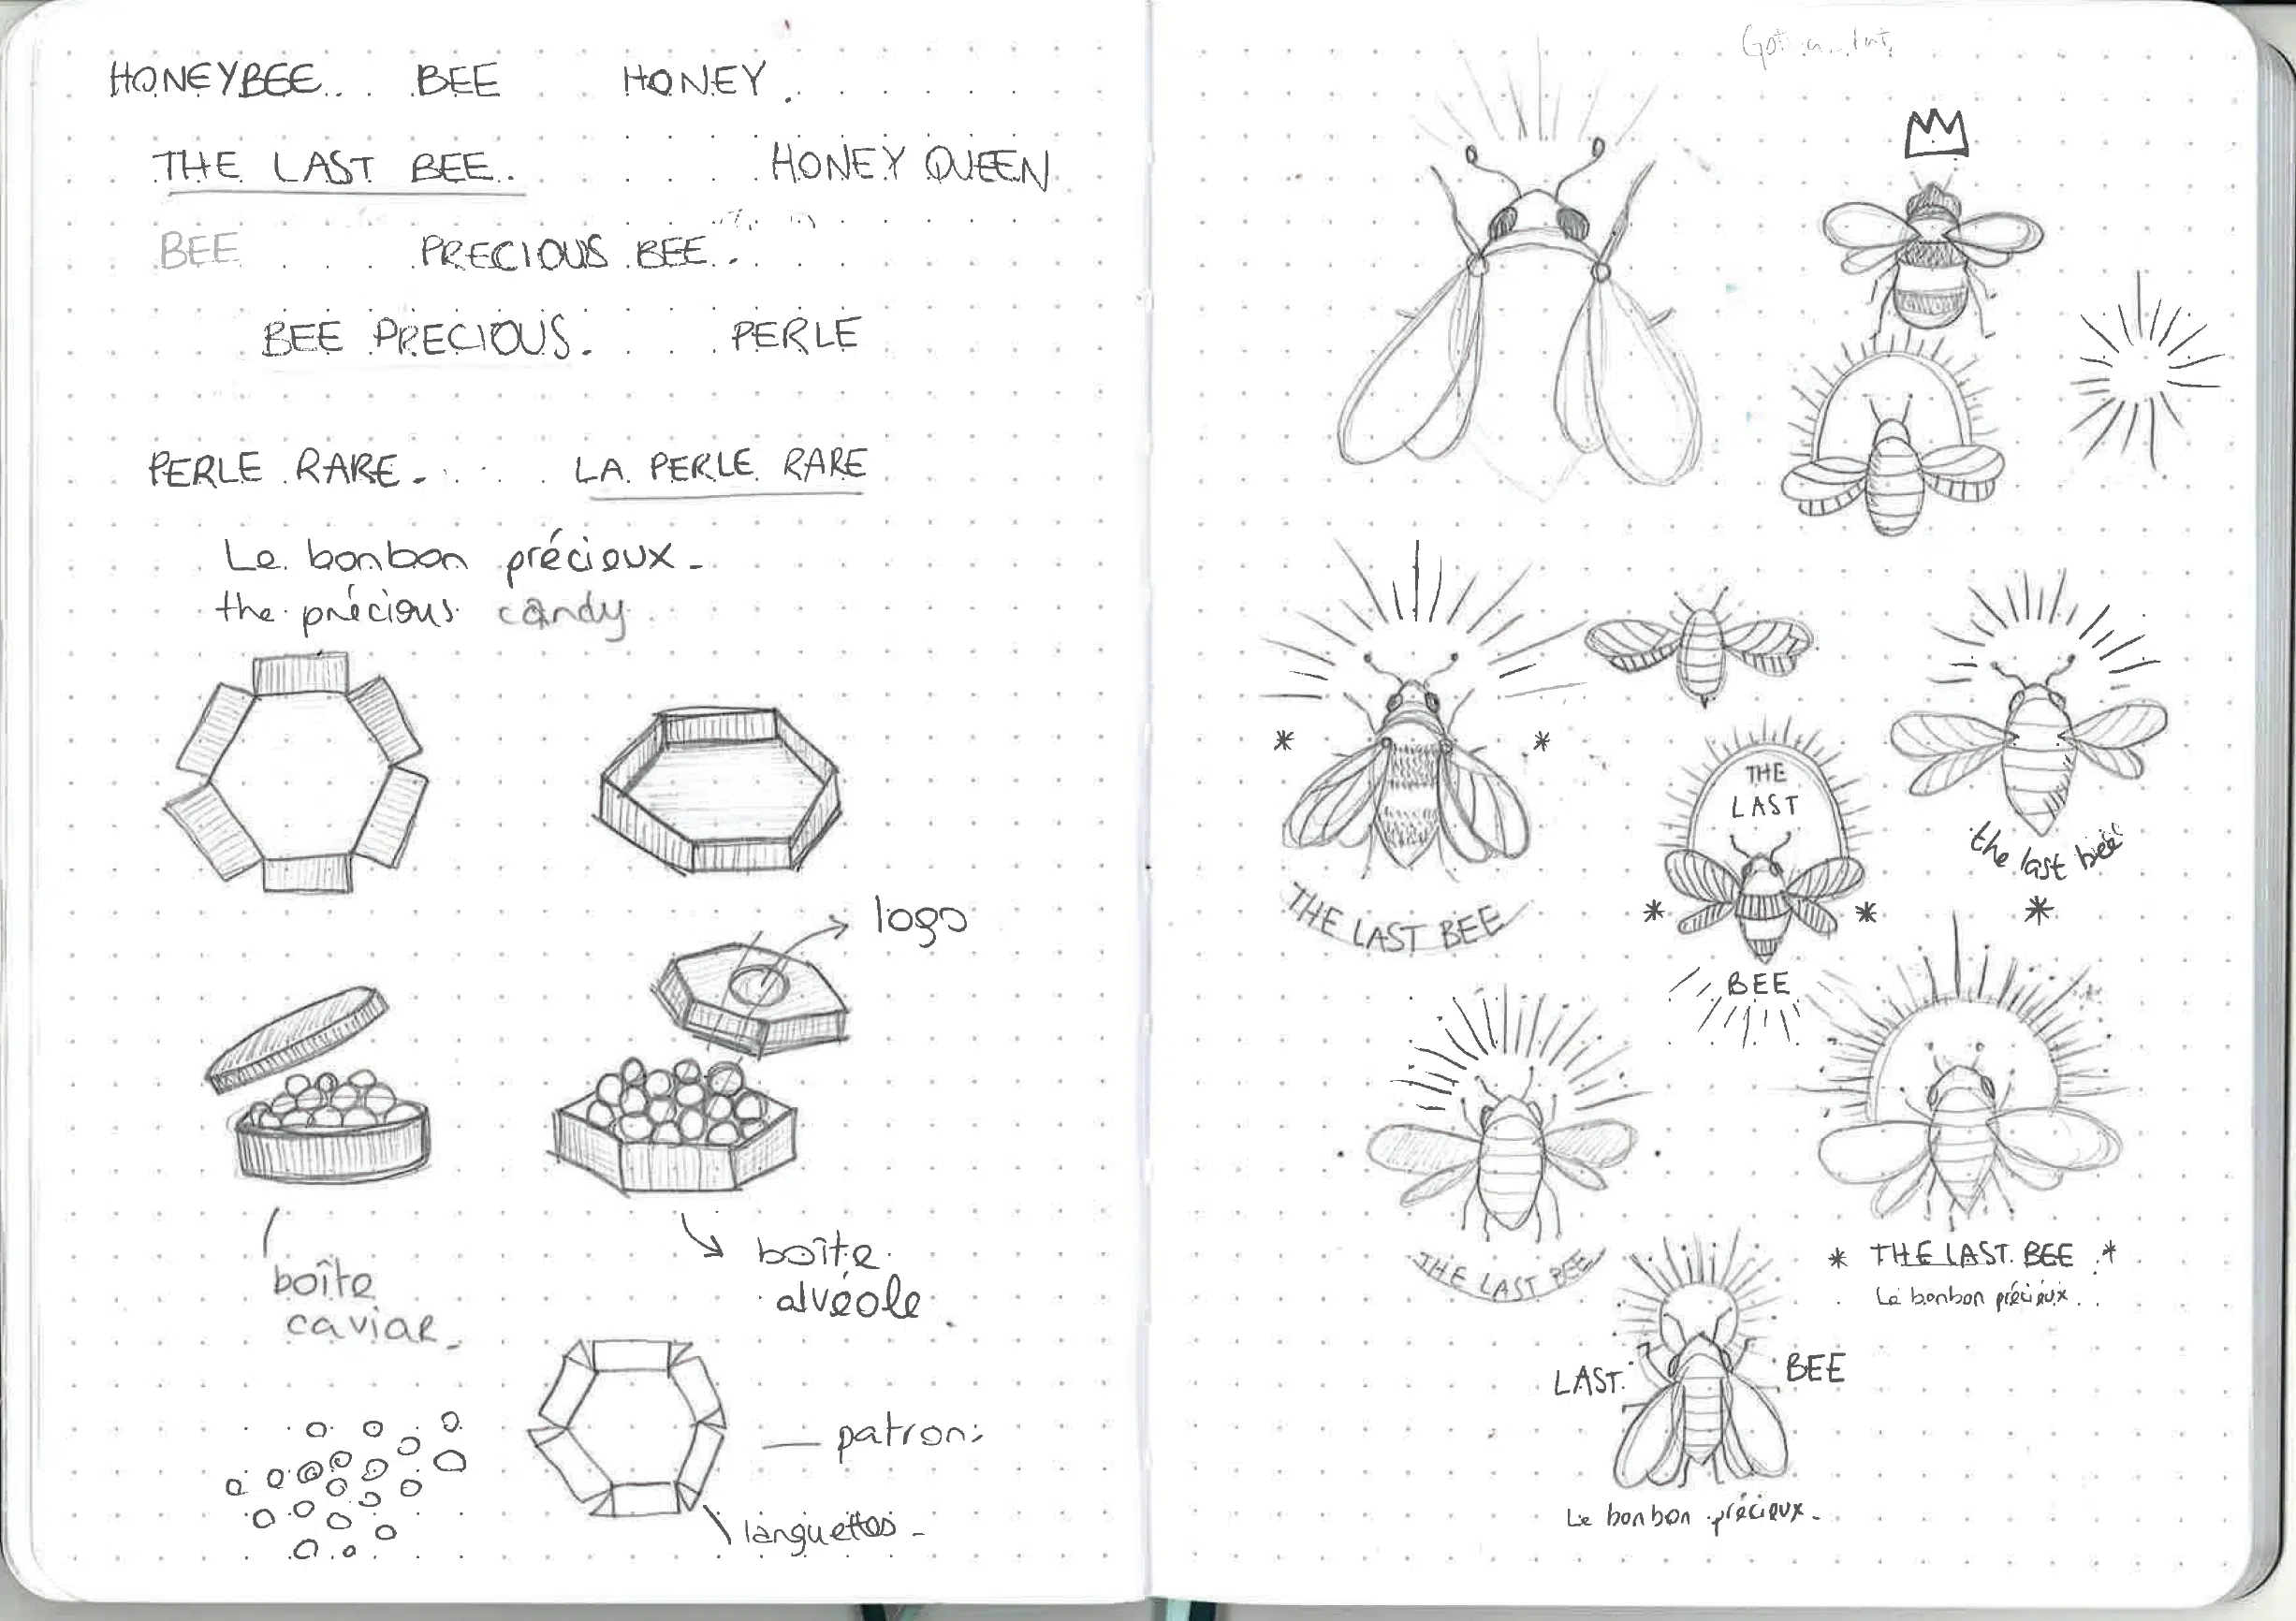 HONEYBEE.. BEE HONEY.
THE LAST BEE.. HONEY QUEEN
BEE PRECIOUS BEE..
BEE PRECIOUS. PERLE
PERLE RARE. LA PERLE RARE
Le bonbon précieux.
the précious candy.
logo
boîte
caviar.
boîte
alvéole.
patron:
languettes.
THE
LAST
BEE
the last bee
THE LAST BEE
THE LAST BEE
* THE LAST BEE *
Le bonbon précieux..
LAST. BEE
Le bonbon précieux.